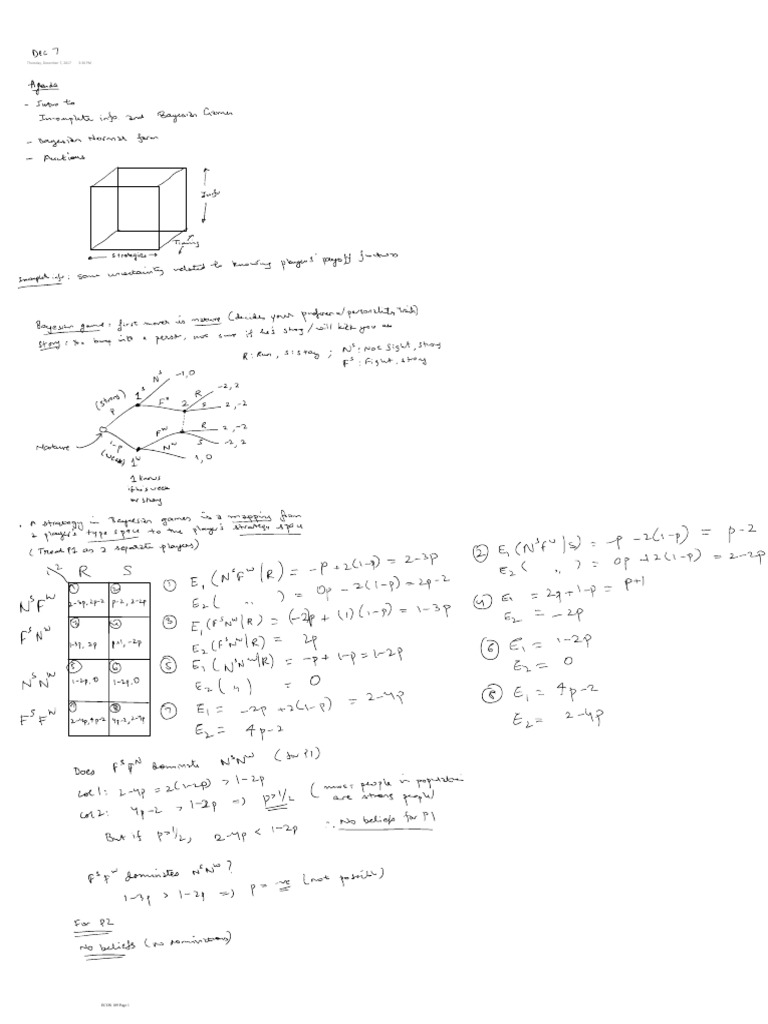 Dec 7
Thursday, December 7, 2017
Agenda
- Intro to
Incomplete info and Bayesian Games
- Bayesian Normal form
- Auctions
Info
Timing
Strategies
Incomplete info: some uncertainty related to knowing players' payoff functions
Bayesian game: first mover is nature (decides your preference/personality
Story: You bump into a person, not sure if he's strong / will kick you
R: Run, S: Stay ; N^S: Not fight, strong
F^S: Fight, strong
N^S -1, 0
(strong) 1^S F^S 2 R -2, 2
p S 2, -2
Nature
1-p F^W R 2, -2
(weak) 1^W N^W S -2, 2
1, 0
1 knows
if he's weak
or strong
. A strategy in Bayesian games is a mapping from
a player's type space to the player's strategy space
(Treat P1 as 2 separate players)
2 R S
N^S F^W ① 2-3p, 2p-2 ② p-2, 2-2p
F^S N^W ③ 1-3p, 2p ④ p+1, -2p
N^S N^W ⑤ 1-2p, 0 ⑥ 1-2p, 0
F^S F^W ⑦ 2-4p, 4p-2 ⑧ 4p-2, 2-4p
① E₁(N^S F^W | R) = -p + 2(1-p) = 2-3p
E₂( " ) = 0p - 2(1-p) = 2p-2
③ E₁(F^S N^W | R) = (-2)p + (1)(1-p) = 1-3p
E₂(F^S N^W | R) = 2p
⑤ E₁(N^S N^W | R) = -p + 1-p = 1-2p
E₂( " ) = 0
⑦ E₁ = -2p + 2(1-p) = 2-4p
E₂ = 4p-2
② E₁(N^S F^W | S) = -p - 2(1-p) = p-2
E₂( " ) = 0p + 2(1-p) = 2-2p
④ E₁ = 2p + 1-p = p+1
E₂ = -2p
⑥ E₁ = 1-2p
E₂ = 0
⑧ E₁ = 4p-2
E₂ = 2-4p
Does F^S F^N dominate N^S N^W (for P1)
Col 1: 2-4p = 2(1-2p) > 1-2p
Col 2: 4p-2 > 1-2p => p>1/2 (most people in population
are strong people)
But if p>1/2, 2-4p < 1-2p ∴ No beliefs for P1
F^S F^W dominates N^S N^W ?
1-3p > 1-2p => p = -ve (not possible)
For P2
No beliefs (no dominations)